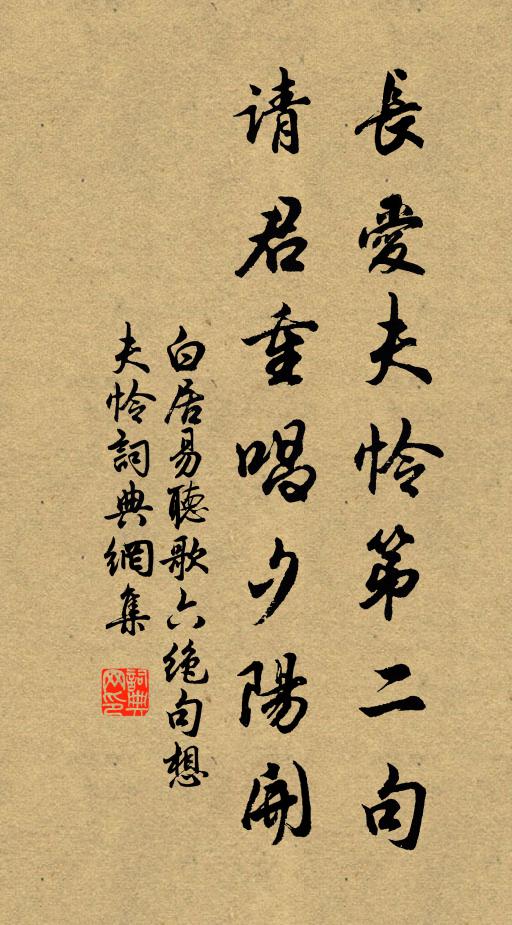 長愛夫怜第二句
请君重唱夕陽開
白居易聽歌六绝句想
夫怜詞典網集
詞典
网印